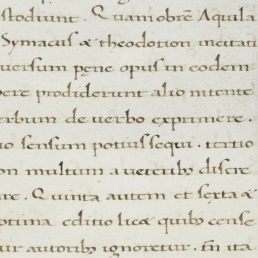 stodiunt. Quam obrē Aquila
Symacus & theodotion incitati
versum pęne opus in eodem
ere prodiderunt alio nitente
rbum de verbo exprimere.
o sensum potius sequi. tertio
on multum a veterib; discre
re. Quinta autem et sexta &
ptima editio lic& quib; cense
ur autorib; ignoretur. tm̄ ita